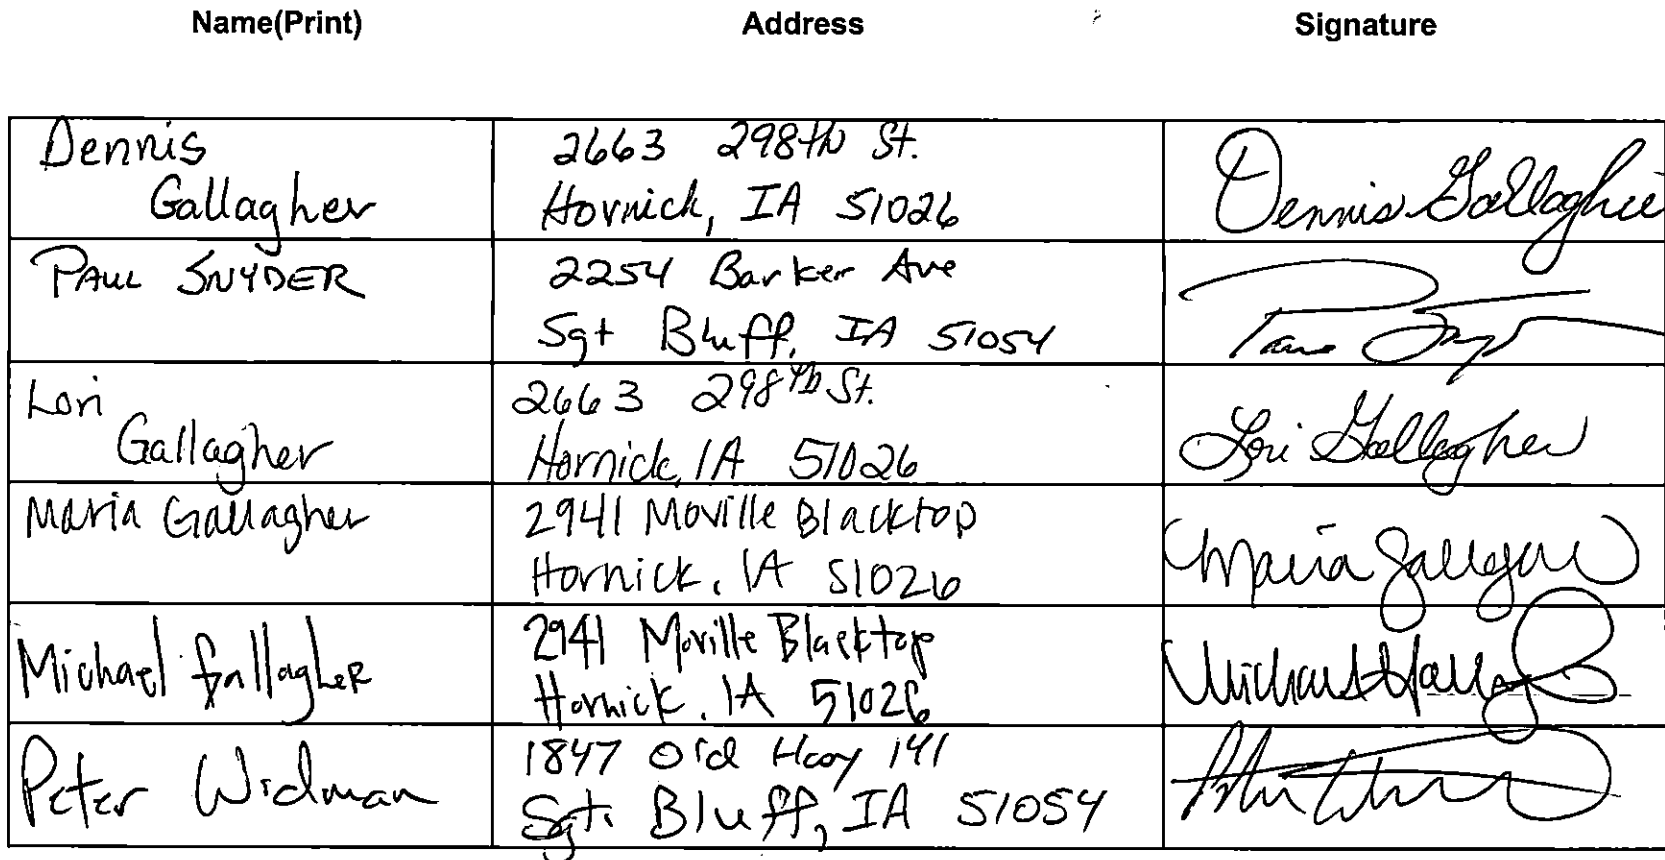 Name(Print) Address Signature
Dennis 2663 298th St.
Gallagher Hornick, IA 51026 Dennis Gallagher
PAUL SNYDER 2254 Barker Ave
Sgt Bluff, IA 51054
Lori 2663 298th St.
Gallagher Hornick, IA 51026 Lori Gallagher
Maria Gallagher 2941 Moville Blacktop
Hornick, IA 51026 Maria Gallagher
Michael Gallagher 2941 Moville Blacktop
Hornick, IA 51026
Peter Widman 1847 Old Hwy 141
Sgt. Bluff, IA 51054